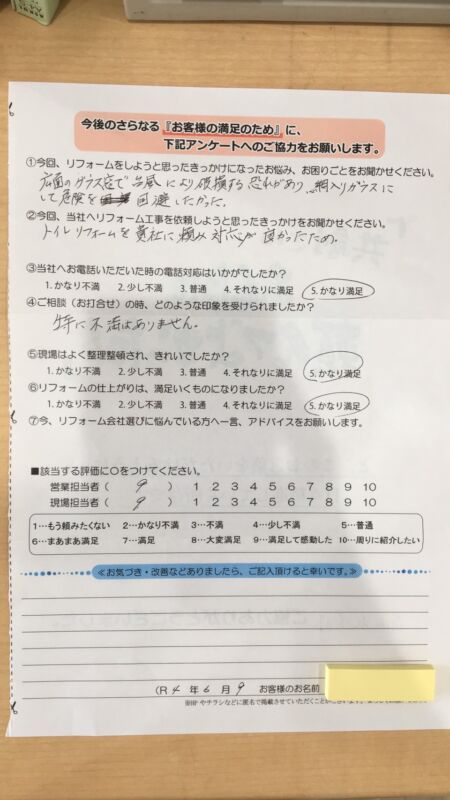 今後のさらなる『お客様の満足のため』に、
下記アンケートへのご協力をお願いします。
①今回、リフォームをしようと思ったきっかけになったお悩み、お困りごとをお聞かせください。
広面のガラス窓で台風により破損する恐れがあり、網入りガラスに
して危険を回避したかった。
②今回、当社へリフォーム工事を依頼しようと思ったきっかけをお聞かせください。
トイレリフォームを貴社に頼み対応が良かったため。
③当社へお電話いただいた時の電話対応はいかがでしたか?
1.かなり不満 2.少し不満 3.普通 4.それなりに満足 5.かなり満足
④ご相談(お打合せ)の時、どのような印象を受けられましたか?
特に不満はありません。
⑤現場はよく整理整頓され、きれいでしたか?
1.かなり不満 2.少し不満 3.普通 4.それなりに満足 5.かなり満足
⑥リフォームの仕上がりは、満足いくものになりましたか?
1.かなり不満 2.少し不満 3.普通 4.それなりに満足 5.かなり満足
⑦今、リフォーム会社選びに悩んでいる方へ一言、アドバイスをお願いします。
■該当する評価に○をつけてください。
営業担当者( 9 ) 1 2 3 4 5 6 7 8 9 10
現場担当者( 9 ) 1 2 3 4 5 6 7 8 9 10
1…もう頼みたくない 2…かなり不満 3…不満 4…少し不満 5…普通
6…まあまあ満足 7…満足 8…大変満足 9…満足して感動した 10…周りに紹介したい
≪お気づき・改善などありましたら、ご記入頂けると幸いです。≫
(R4年6月9 お客様のお名前
※HPやチラシなどに匿名で掲載させていただくことが